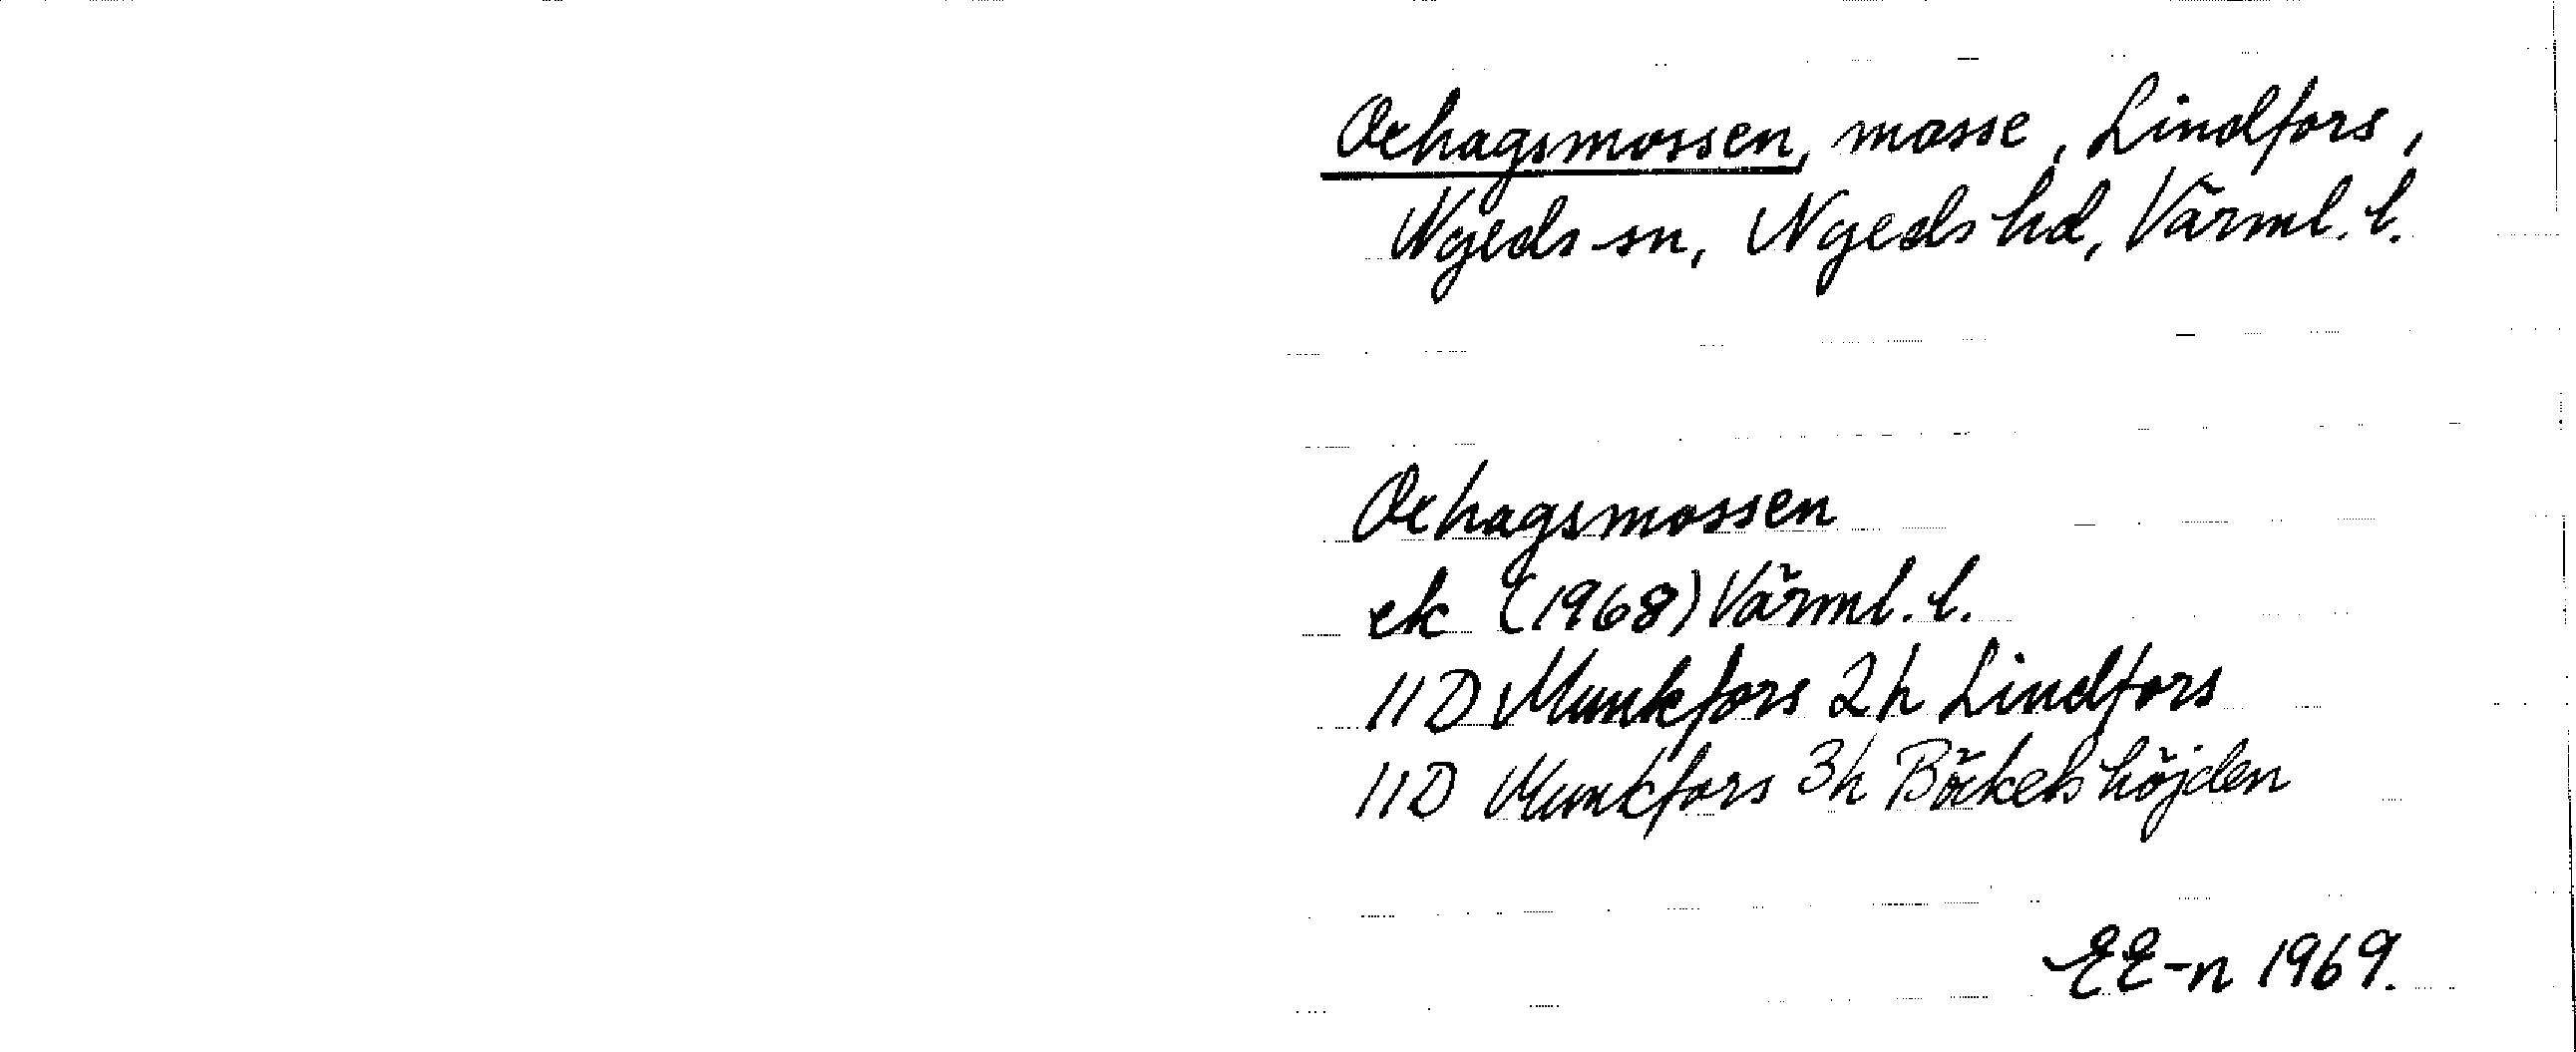 Oxhagsmossen, mosse, Lindfors,
Nyeds sn, Nyeds hd, Värml. l.
Oxhagsmossen
ek (1968) Värml. l.
11D Munkfors 2h Lindfors
11D Munkfors 3h Böckelshöjden
EE-n 1969.